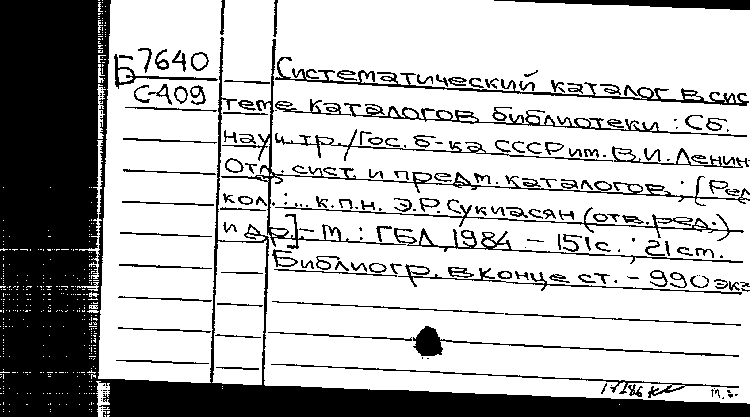 Б 7640
С-409
Систематический каталог в сис
теме каталогов библиотеки : Сб.
науч. тр. / Гос. б-ка СССР им. В.И. Ленин
Отд. сист. и предм. каталогов ; [Ред
кол.: ... к.п.н. Э.Р. Сукиасян (отв. ред.)
и др.] - М. : ГБЛ, 1984 - 151 с. ; 21 см.
Библиогр. в конце ст. - 990 экз